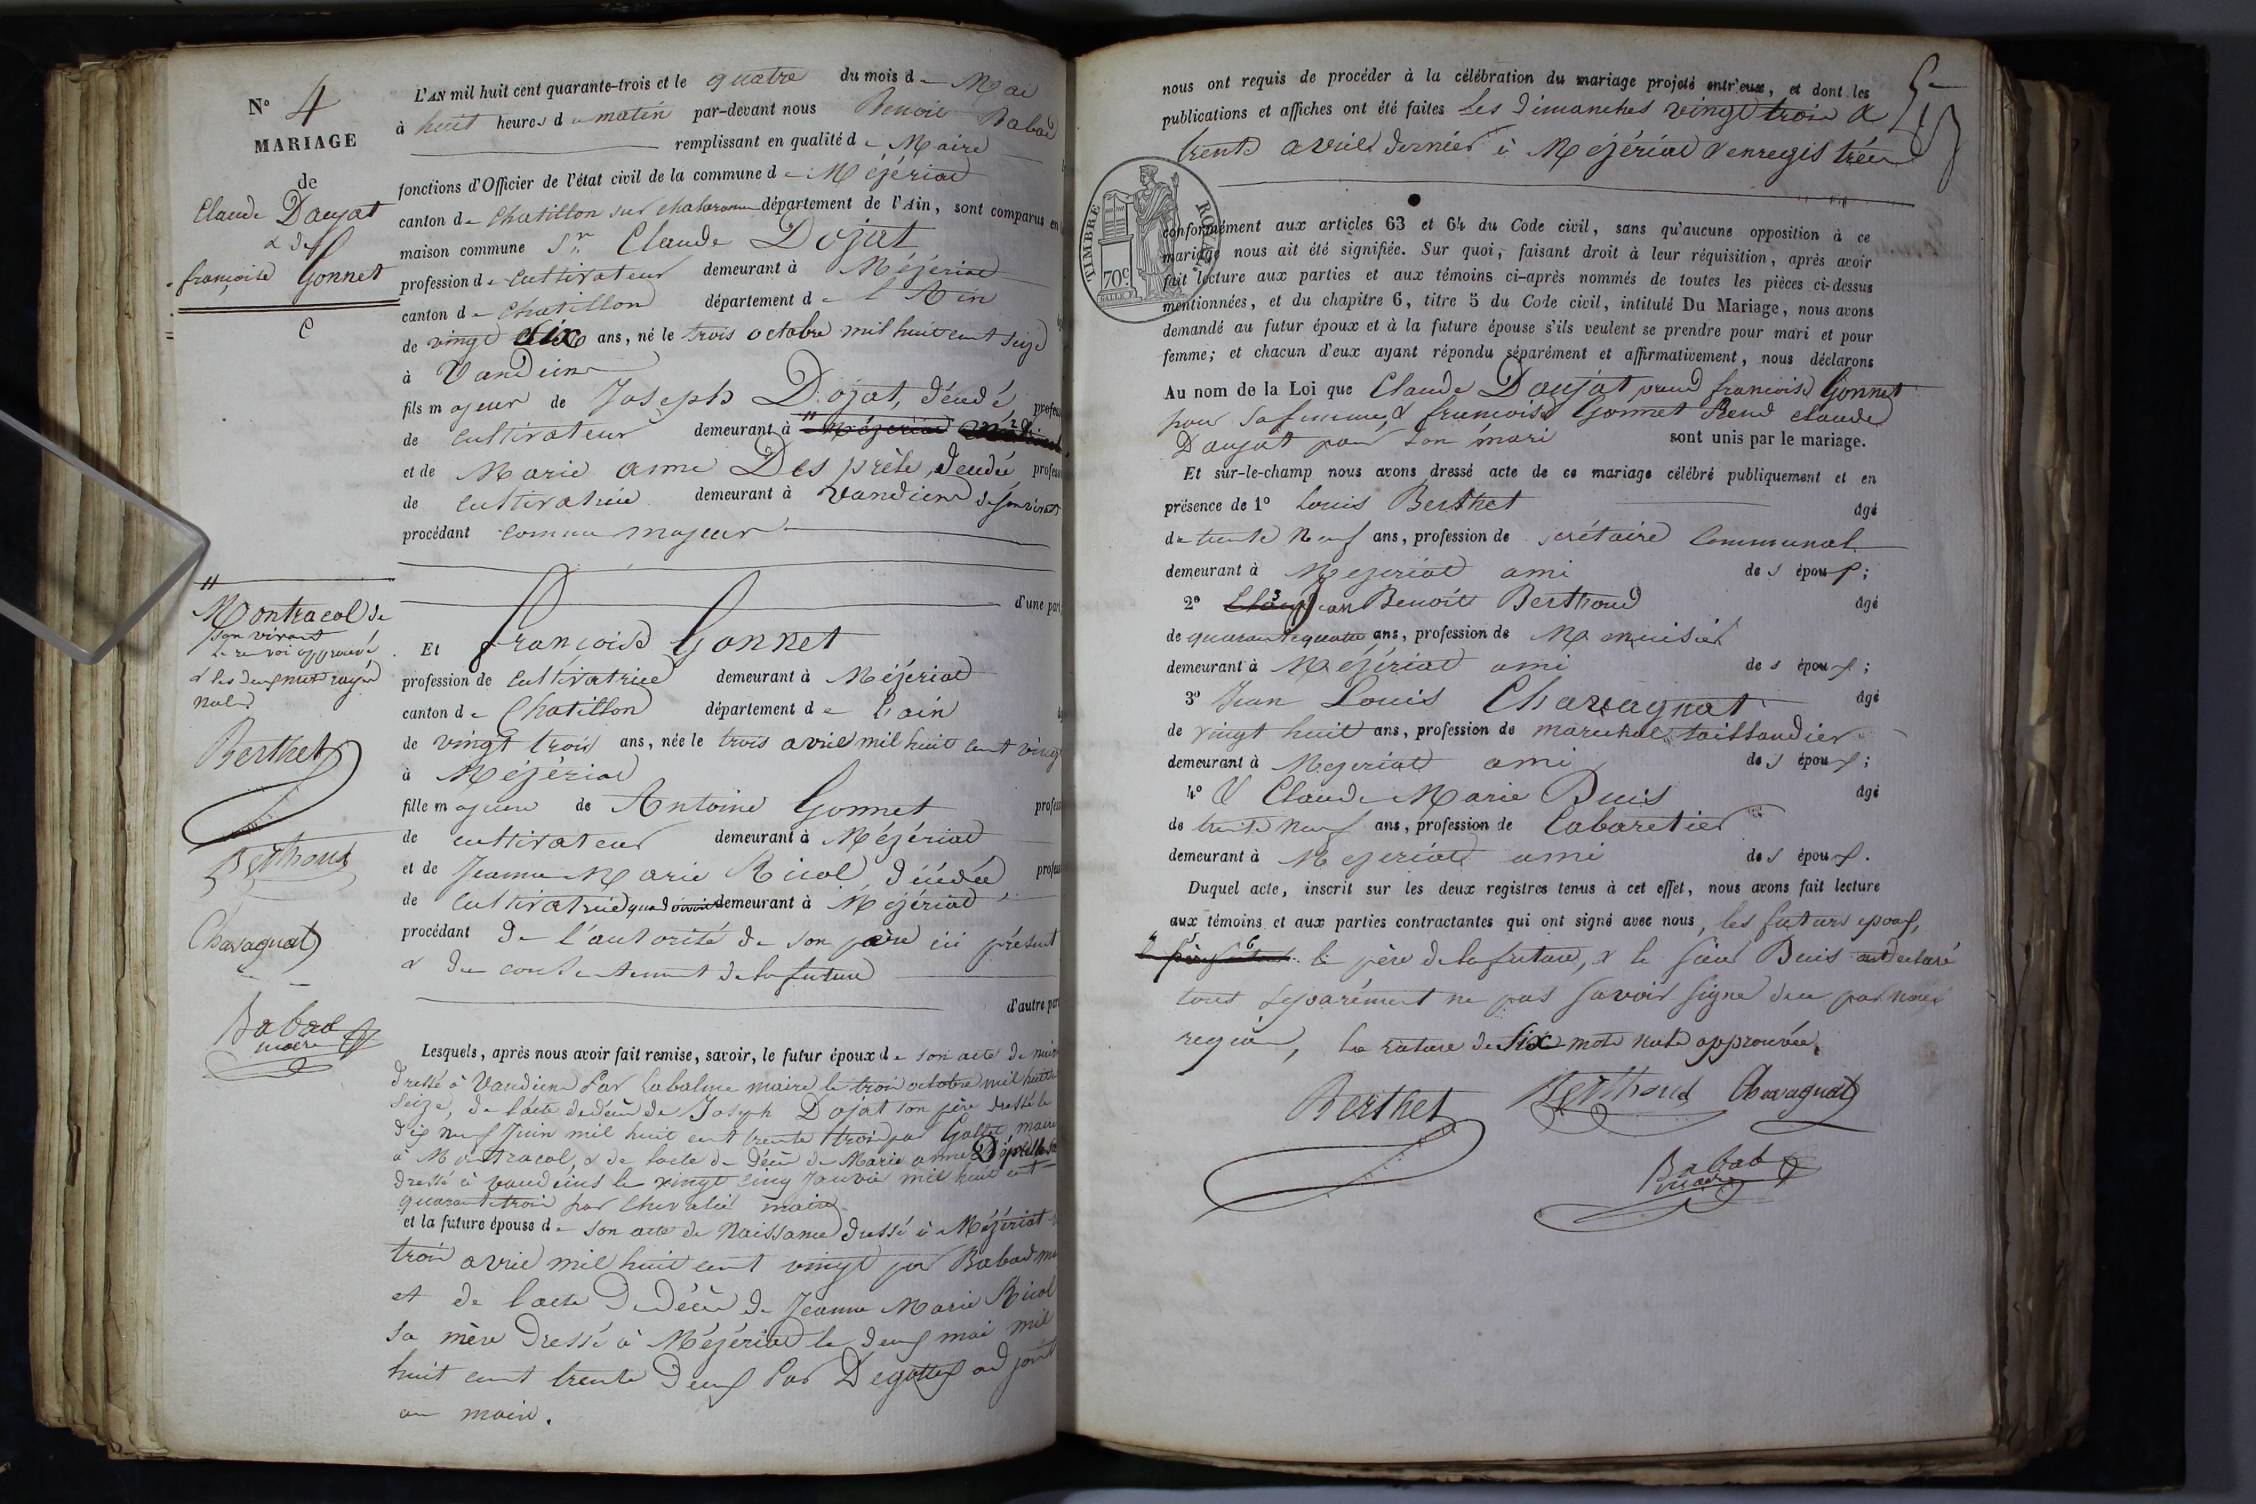 N° 4
MARIAGE
de
Claude Daujat
& de
françoise Gonnet
C
L'AN mil huit cent quarante-trois et le quatre du mois de Mai
à huit heures du matin par-devant nous Benoit Babad
remplissant en qualité de Maire
fonctions d'Officier de l'état civil de la commune de Mézériat
canton de Chatillon sur chalaronne département de l'Ain, sont comparus en
maison commune Sr Claude Dojat
profession de Cultivateur demeurant à Mézériat
canton de Chatillon département de l'Ain
de vingt six ans, né le trois octobre mil huit cent seize
à Vandeins
fils majeur de Joseph Dojat, décédé profess
de cultivateur demeurant à Mézériat
et de Marie anne Desprète, décédée profess
de cultivatrice demeurant à Vandeins de son vivant
procédant comme majeur
d'une part
" Montracol de
son vivant
le renvoi approuvé
& les deux mots rayés
nuls
Berthet
Berthoud
Chavagnat
Babad
maire
Et Françoise Gonnet
profession de Cultivatrice demeurant à Mézériat
canton de Chatillon département de l'ain
de vingt trois ans, née le trois avril mil huit cent vingt
à Mézériat
fille majeure de Antoine Gonnet profess
de cultivateur demeurant à Mézériat
et de Jeanne Marie Ricol décédée profess
de Cultivatrice quand vivait demeurant à Mézériat
procédant de l'autorité de son père ici présent
& du consentement de la future
d'autre part
Lesquels, après nous avoir fait remise, savoir, le futur époux de son acte de nais
dressé à Vandeins Par Labalme maire le trois octobre mil huit
seize, de l'acte de décès de Joseph Dojat son père dressé le
dix neuf Juin mil huit cent trente trois par Gallet maire
à Montracol, & de l'acte de décès de Marie anne
dressé à vandeins le vingt cinq Janvier mil huit cent
quarante trois par Chevalier maire
et la future épouse de son acte de Naissance dressé à Mézériat
trois avril mil huit cent vingt par Babad
et de l'acte de décès de Jeanne Marie Ricol
sa mère dressé à Mézériat le deux mai mil
huit cent trente deux Par Degottex adjoint
au maire.
nous ont requis de procéder à la célébration du mariage projeté entr'eux, et dont les
publications et affiches ont été faites Les dimanches vingt trois &
trente avril dernier à Mézériat & enregistrées
TIMBRE ROYAL
70 c.
conformément aux articles 63 et 64 du Code civil, sans qu'aucune opposition à ce
mariage nous ait été signifiée. Sur quoi, faisant droit à leur réquisition, après avoir
fait lecture aux parties et aux témoins ci-après nommés de toutes les pièces ci-dessus
mentionnées, et du chapitre 6, titre 5 du Code civil, intitulé Du Mariage, nous avons
demandé au futur époux et à la future épouse s'ils veulent se prendre pour mari et pour
femme; et chacun d'eux ayant répondu séparément et affirmativement, nous déclarons
Au nom de la Loi que Claude Daujat prend francoise Gonnet
pour sa femme, & francoise Gonnet Prend claude
Daujat pour son mari sont unis par le mariage.
Et sur-le-champ nous avons dressé acte de ce mariage célébré publiquement et en
présence de 1° Louis Berthet âgé
de trente Neuf ans, profession de secrétaire Communal
demeurant à Mezeriat ami des époux;
2° Benoit Berthoud âgé
de quarante quatre ans, profession de Menuisier
demeurant à Mézériat ami des époux;
3° Jean Louis Chavagnat âgé
de vingt huit ans, profession de marechal taillandier
demeurant à Mezeriat ami des époux;
4° & Claude Marie Buis âgé
de trente neuf ans, profession de Cabaretier
demeurant à Mezeriat ami des époux.
Duquel acte, inscrit sur les deux registres tenus à cet effet, nous avons fait lecture
aux témoins et aux parties contractantes qui ont signé avec nous, les futurs epoux,
le père de la future, & le sieur Buis ont declaré
tous séparément ne pas savoir signé de ce par nous
requis, La rature de six mots nuls approuvée.
Berthet Berthoud Chavagnat
Babad
maire